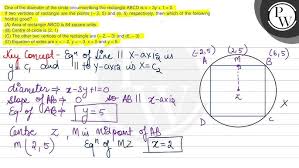 One of the diameter of the circle circumscribing the rectangle ABCD is x - 3y + 1 = 0.
If two vertices of rectangle are the points (-2, 5) and (6, 5) respectively, then which of the following hold(s) good?
(A) Area of rectangle ABCD is 64 square units.
(B) Centre of circle is (2, 1)
(C) The other two vertices of the rectangle are (-2, -3) and (6, -3)
(D) Equation of sides are x = -2, y = -3, x = 5 and y = 6.
Key Concept - Eqn of line || X-axis is
y = C1 and || to Y-axis is X = C2
diameter → x-3y+1=0
slope of AB → 0 so AB || x-axis
Eqn of AB → y = 5
Centre Z, M is midpoint of AB
M(2,5) Eqn of MZ x = 2
(-2,5) (2,5) (6,5)
A M B
Z
D C
X
W